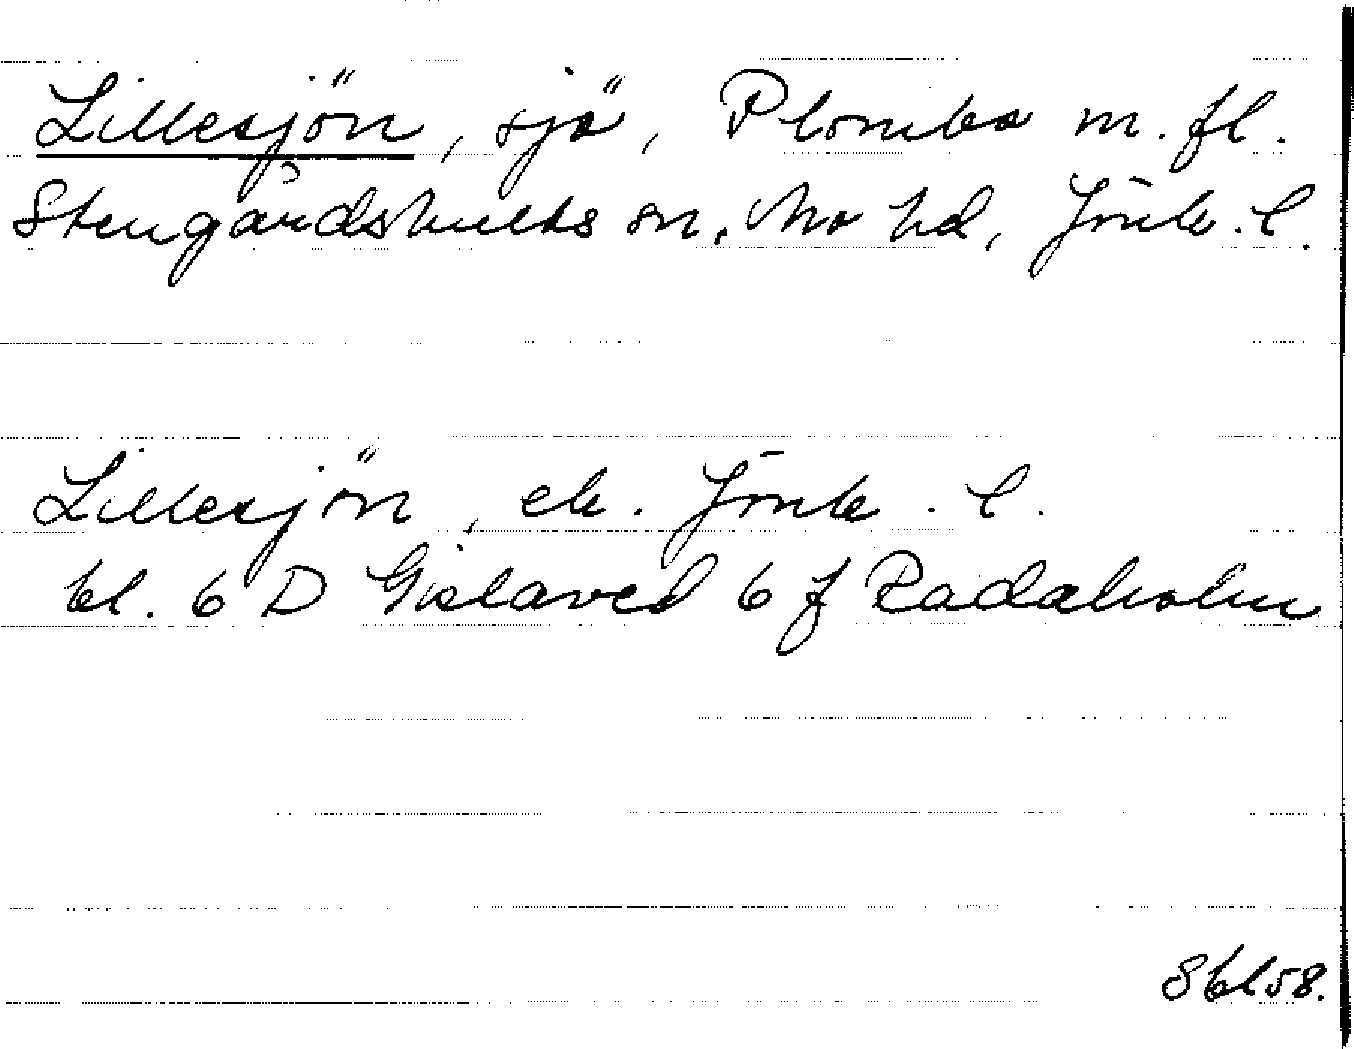 Lillesjön, sjö, Plombo m.fl.
Stengårdshults sn, Mo hd, Jönk.l.
Lillesjön, ek. Jönk.l.
bl. 6 D Gislaved 6 f Radaholm
Sbl58.